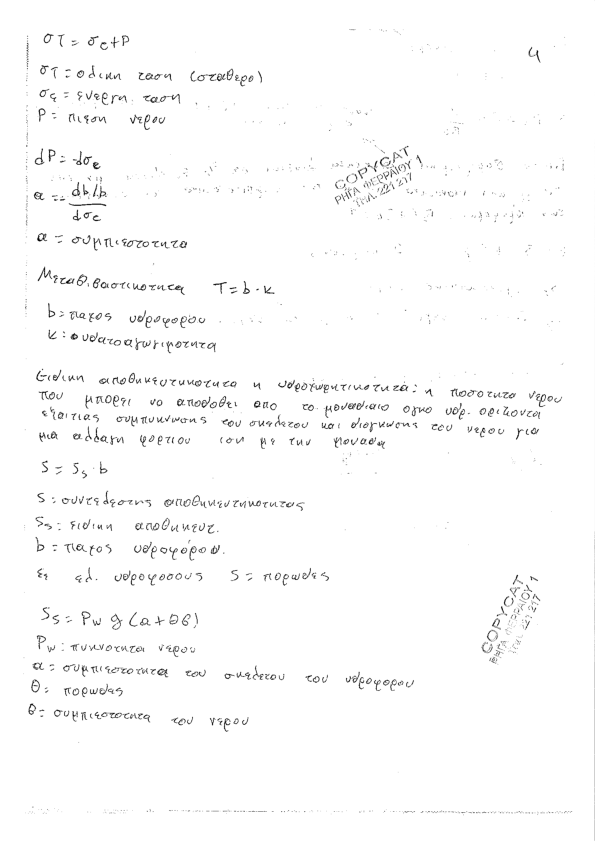 στ = σc+P
4
στ = ολικη ταση (σταθερο)
σε = ενεργη ταση
P = πιεση νερου
dP = -dσe
a = - db/b
dσe
a = συμπιεστοτητα
Μεταβιβαστικοτητα T = b·κ
b = παχος υδροφορου
κ: υδατοαγωγιμοτητα
Ειδικη αποθηκευτικοτητα η υδροχωρητικοτητα: η ποσοτητα νερου
που μπορει να αποδοθει απο το μοναδιαιο ογκο υδρ. οριζοντα
εξαιτιας συμπυκνωσης του σκελετου και διογκωσης του νερου για
μια αλλαγη φορτιου ιση με την μοναδα
S = Ss·b
S: συντελεστης αποθηκευτικοτητας
Ss: ειδικη αποθηκευτ.
b = παχος υδροφόρου.
σε ελ. υδροφορους S = πορωδες
Ss = Pw g (a+θβ)
Pw: πυκνοτητα νερου
a = συμπιεστοτητα του σκελετου του υδροφορου
θ = πορωδες
β = συμπιεστοτητα του νερου
COPYCAT
ΡΗΓΑ ΦΕΡΡΑΙΟΥ 1
ΤΗΛ. 221 217
COPYCAT
ΡΗΓΑ ΦΕΡΡΑΙΟΥ 1
ΤΗΛ. 221 217